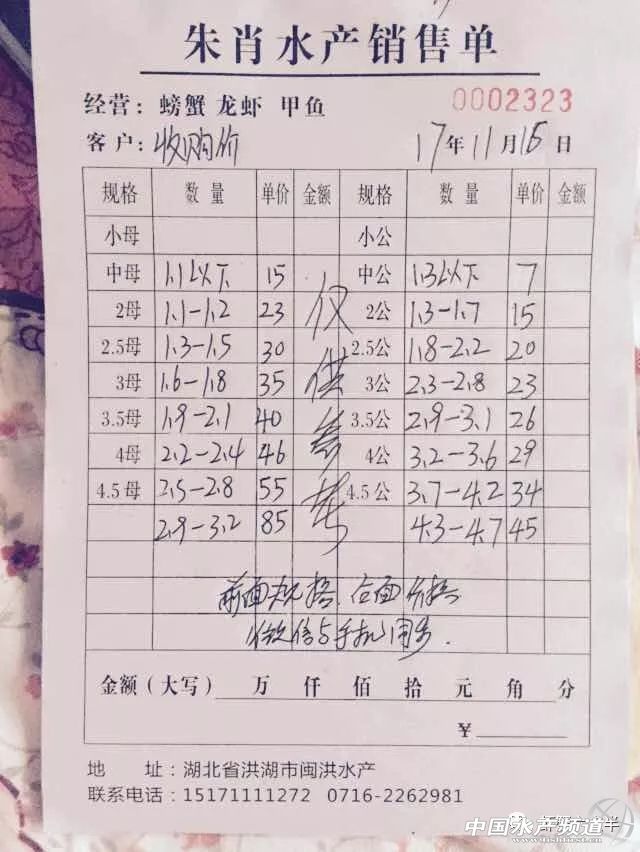 朱肖水产销售单
经营：螃蟹 龙虾 甲鱼 0002323
客户：收购价 17年11月15日
规格 数量 单价 金额 规格 数量 单价 金额
小母 小公
中母 1.1以下 15 中公 1.3以下 7
2母 1.1-1.2 23 2公 1.3-1.7 15
2.5母 1.3-1.5 30 2.5公 1.8-2.2 20
3母 1.6-1.8 35 3公 2.3-2.8 23
3.5母 1.9-2.1 40 3.5公 2.9-3.1 26
4母 2.2-2.4 46 4公 3.2-3.6 29
4.5母 2.5-2.8 55 4.5公 3.7-4.2 34
2.9-3.2 85 4.3-4.7 45
仅供参考
前面规格、后面价格
微信与手机同步.
金额（大写） 万 仟 佰 拾 元 角 分
¥
地 址：湖北省洪湖市闽洪水产
联系电话：15171111272 0716-2262981
中国水产频道
www.fishfirst.cn